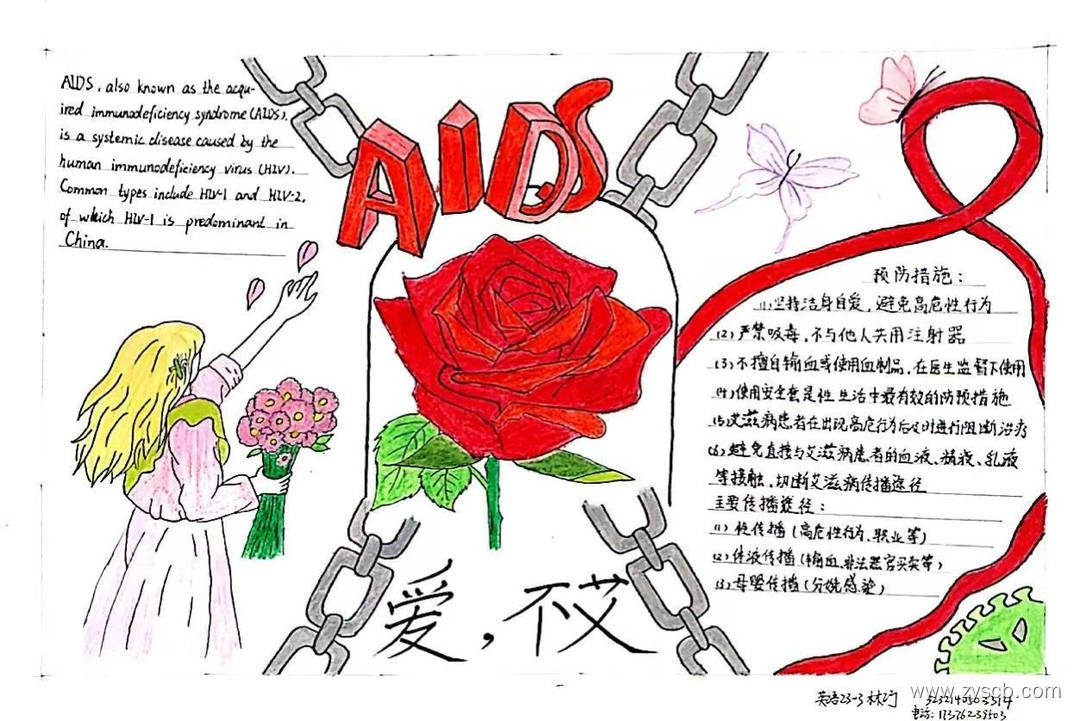 AIDS, also known as the acqu-
ired immunodeficiency syndrome (AIDS),
is a systemic disease caused by the
human immunodeficiency virus (HIV).
Common types include HIV-1 and HIV-2,
of which HIV-1 is predominant in
China.
AIDS
预防措施：
(1)坚持洁身自爱，避免高危性行为
(2)严禁吸毒，不与他人共用注射器
(3)不擅自输血或使用血制品，在医生监督下使用
(4)使用安全套是性生活中最有效的防预措施
(5)艾滋病患者在出现高危行为后及时进行阻断治疗
(6)避免直接与艾滋病患者的血液、精液、乳液
等接触，切断艾滋病传播途径
主要传播途径：
(1)性传播(高危性行为、职业等)
(2)体液传播(输血、非法器官买卖等)
(3)母婴传播(分娩感染)
爱，不艾
英语23-3 林
电话:
www.zyscb.com